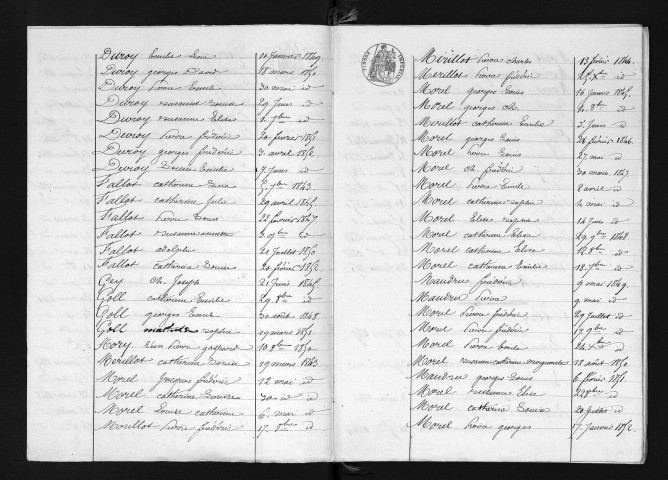 Duroy Emilie Léon 10 janvier 1849.
Duroy georges David 18 mars 1850
Duroy pierre Emile 30 mai id
Duroy Susanne Louise 29 Juin id
Duroy Susanne Elise 1. 9bre id
Duroy pierre frédéric 20 février 1851
Duroy georges frédéric 3. avril 1852
Duroy Louise Emilie 17 Juin id
Fallot catherine 5 7bre 1843
Fallot catherine Julie 29 avril 1845
Fallot pierre Louis 22 février 1847
Fallot Susanne 3. 9bre id
Fallot adolphe 21 Juillet 1850
Fallot catherine Louise 20 février 1852
Gey Ch. Joseph 21 Juin 1845
Goll catherine Emilie 29 8bre id
Goll georges Emile 30 août 1848
Goll sophie 19 mars 1851
Hory pierre gaspard 10 8bre 1850
Mérillot catherine Louise 19 mars 1843
Morel Jacques frédéric 12 mai id
Morel catherine Louise 30 id id
Morel Louise catherine 6. mai id
Morillot pierre frédéric 17. 8bre id
Mérillot pierre charles 13 février 1844.
Merillot pierre frédéric 25 Xbre id
Morel georges Louis 16 Janvier 1845
Morel georges Ch. 4. 8bre id
Morillot catherine Emilie 3. Juin id
Morel georges Louis 28 février 1846.
Morel pierre Louis 27 mai id
Morel ch. frédéric 30 mars 1847
Morel pierre Emile 8 avril id
Morel catherine sophie 4 mai id
Morel Elise sophie 14 Juin id
Morel catherine Elisa 29 9bre 1848
Morel catherine Elise 12. 8bre id
Morel catherine Emilie 18. 7bre id
Maudru frédéric 9 mai 1849.
Maudru pierre 9. mai id
Morel pierre frédéric 29 Juillet id
Morel pierre frédéric 17 9bre id
Morel pierre Emile 24 Xbre id
Morel susanne catherine marguerite 18 août 1850
Maudru georges Louis 6 février 1851.
Morel susanne Elise id
Morel catherine Louise 20 Juillet id
Morel pierre georges 17 Janvier 1852